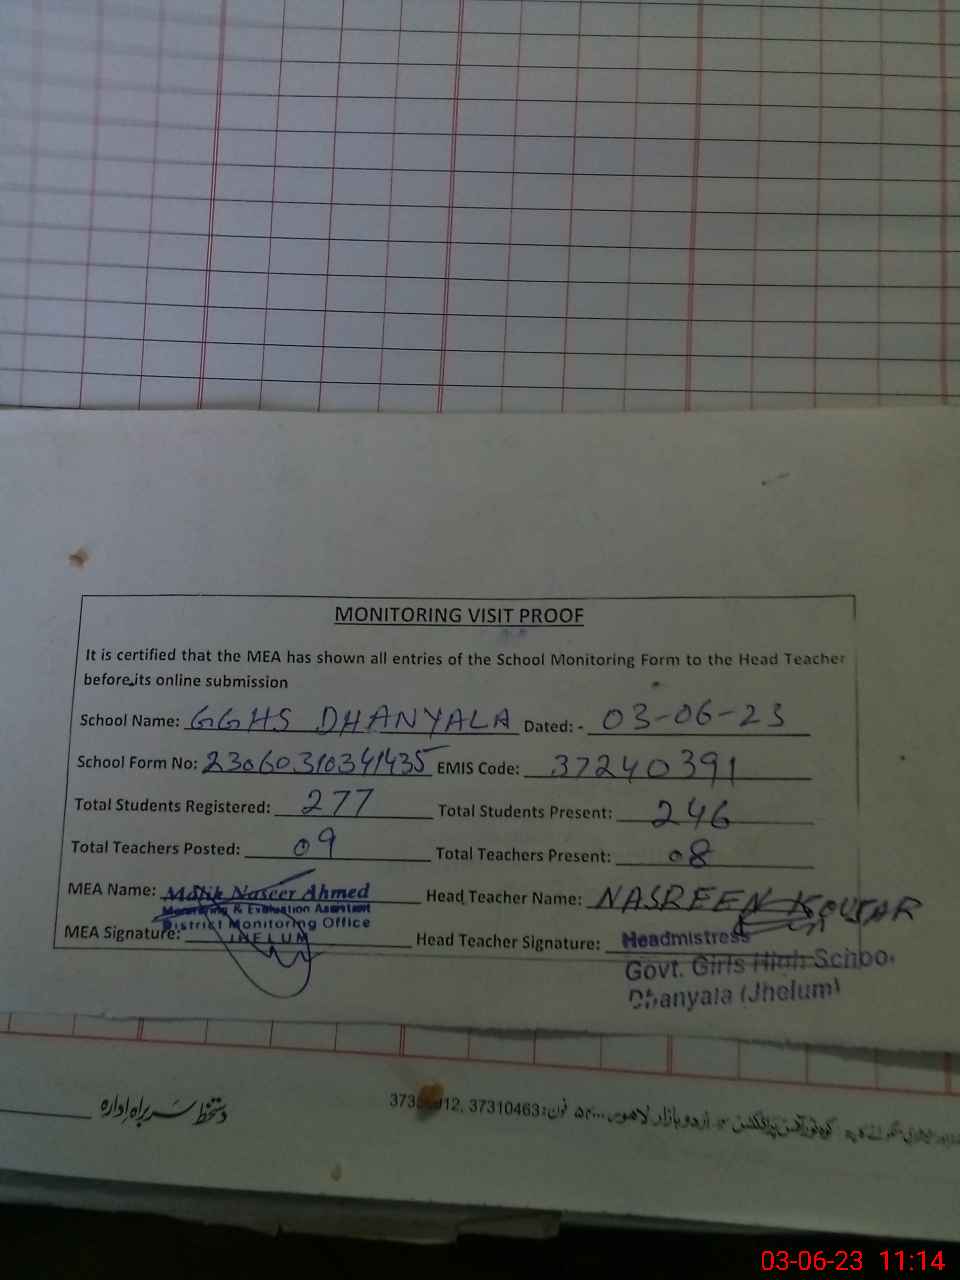 MONITORING VISIT PROOF
It is certified that the MEA has shown all entries of the School Monitoring Form to the Head Teacher
before its online submission
School Name: GGHS DHANYALA Dated: - 03-06-23
School Form No: 23060310341435 EMIS Code: 37240391
Total Students Registered: 277 Total Students Present: 246
Total Teachers Posted: 09 Total Teachers Present: 08
MEA Name: Malik Naseer Ahmed Head Teacher Name: NASREEN KOUSAR
Monitoring & Evaluation Assistant
District Monitoring Office
MEA Signature: JHELUM Head Teacher Signature: Headmistress
Govt. Girls High School
Dhanyala (Jhelum)
دستخط سربراہ ادارہ
37310463 :فون اردو بازار لاہور
03-06-23 11:14